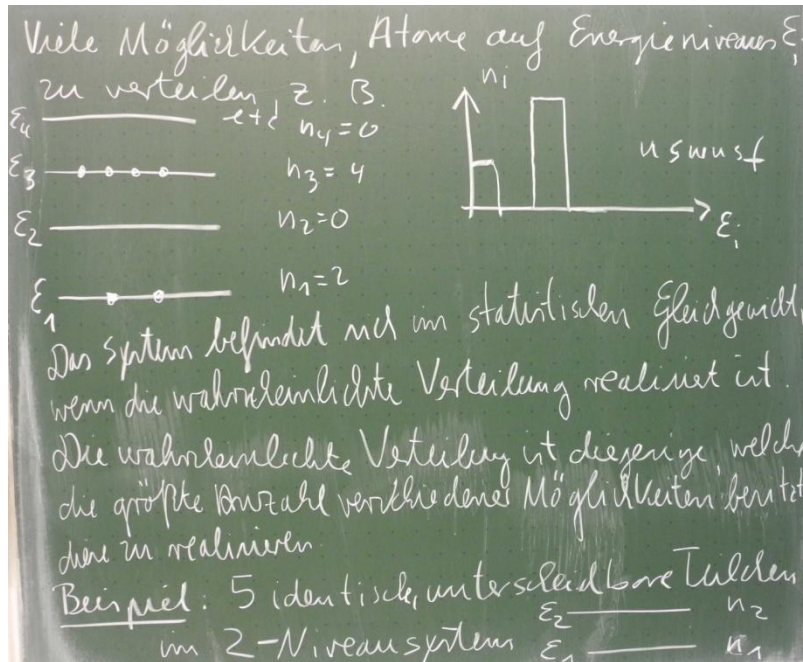 Viele Möglichkeiten, Atome auf Energieniveaus εi
zu verteilen z. B.
ε4 etc n4=0
ε3 n3=4
ε2 n2=0
ε1 n1=2
ni
uswusf
εi
Das System befindet sich im statistischen Gleichgewicht,
wenn die wahrscheinlichste Verteilung realisiert ist.
Die wahrscheinlichste Verteilung ist diejenige, welche
die größte Anzahl verschiedener Möglichkeiten besitzt
diese zu realisieren.
Beispiel: 5 identische, unterscheidbare Teilchen
im 2-Niveausystem
ε2 n2
ε1 n1